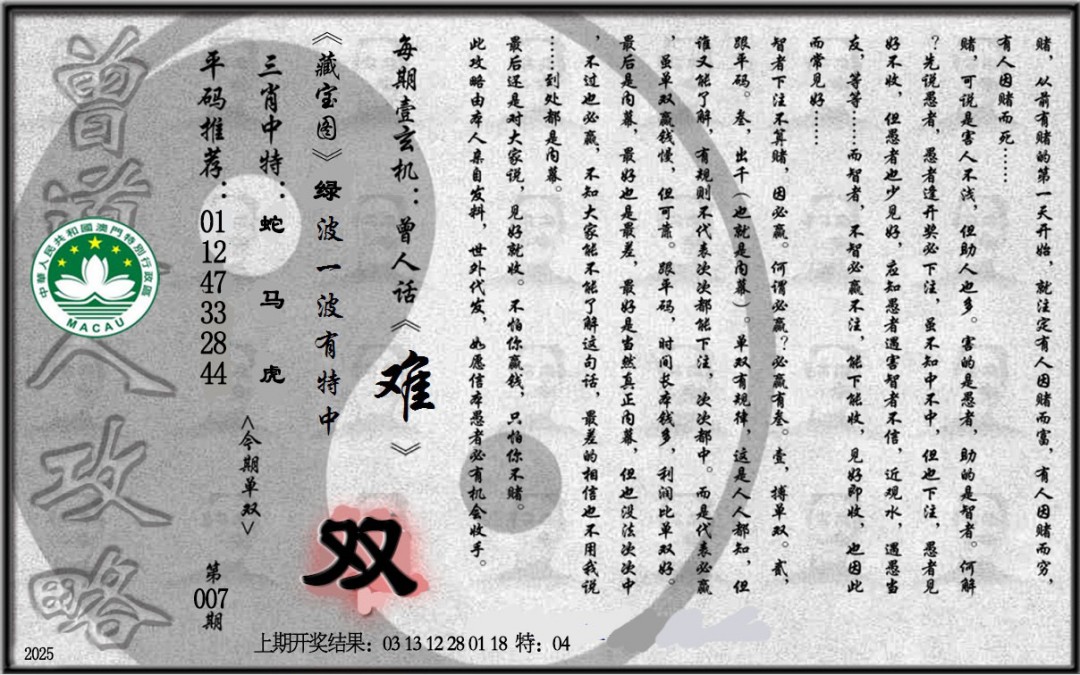 赌，从前有赌的第一天开始，就注定有人因赌而富，有人因赌而穷，
有人因赌而死……
赌，可说是害人不浅，但助人也多。害的是愚者，助的是智者。何解
？先说愚者，愚者逢开奖必下注，虽不知中不中，但也下注，愚者见
好不收，但愚者也少见好，应知愚者遇害智者不信，近观水，遇愚当
友，等等……而智者，不智必赢不注，能下能收，见好即收，也因此
而常见好……
智者下注不算赌，因必赢。何谓必赢？必赢有叁。壹，搏单双。贰，
跟平码。叁，出千（也就是内幕）。单双有规律，这是人人都知，但
谁又能了解，有规则不代表次次都能下注，次次都中。而是代表必赢
，虽单双赢钱慢，但可靠。跟平码，时间长本钱多，利润比单双好。
最后是内幕，最好也是最差，最好是当然真正内幕，但也没法次次中
，不过也必赢，不知大家能不能了解这句话，最差的相信也不用我说
……到处都是内幕。
最后还是对大家说，见好就收。不怕你赢钱，只怕你不赌。
此攻略由本人亲自发料，世外代发，如愿信本愚者必有机会收手。
每期壹玄机：曾人话《难》
《藏宝图》绿波一波有特中
双
三肖中特：蛇 马 虎
<今期单双>
平码推荐：01 12 47 33 28 44
第007期
曾道人攻略
中華人民共和國澳門特別行政區
MACAU
上期开奖结果：03 13 12 28 01 18 特：04
2025